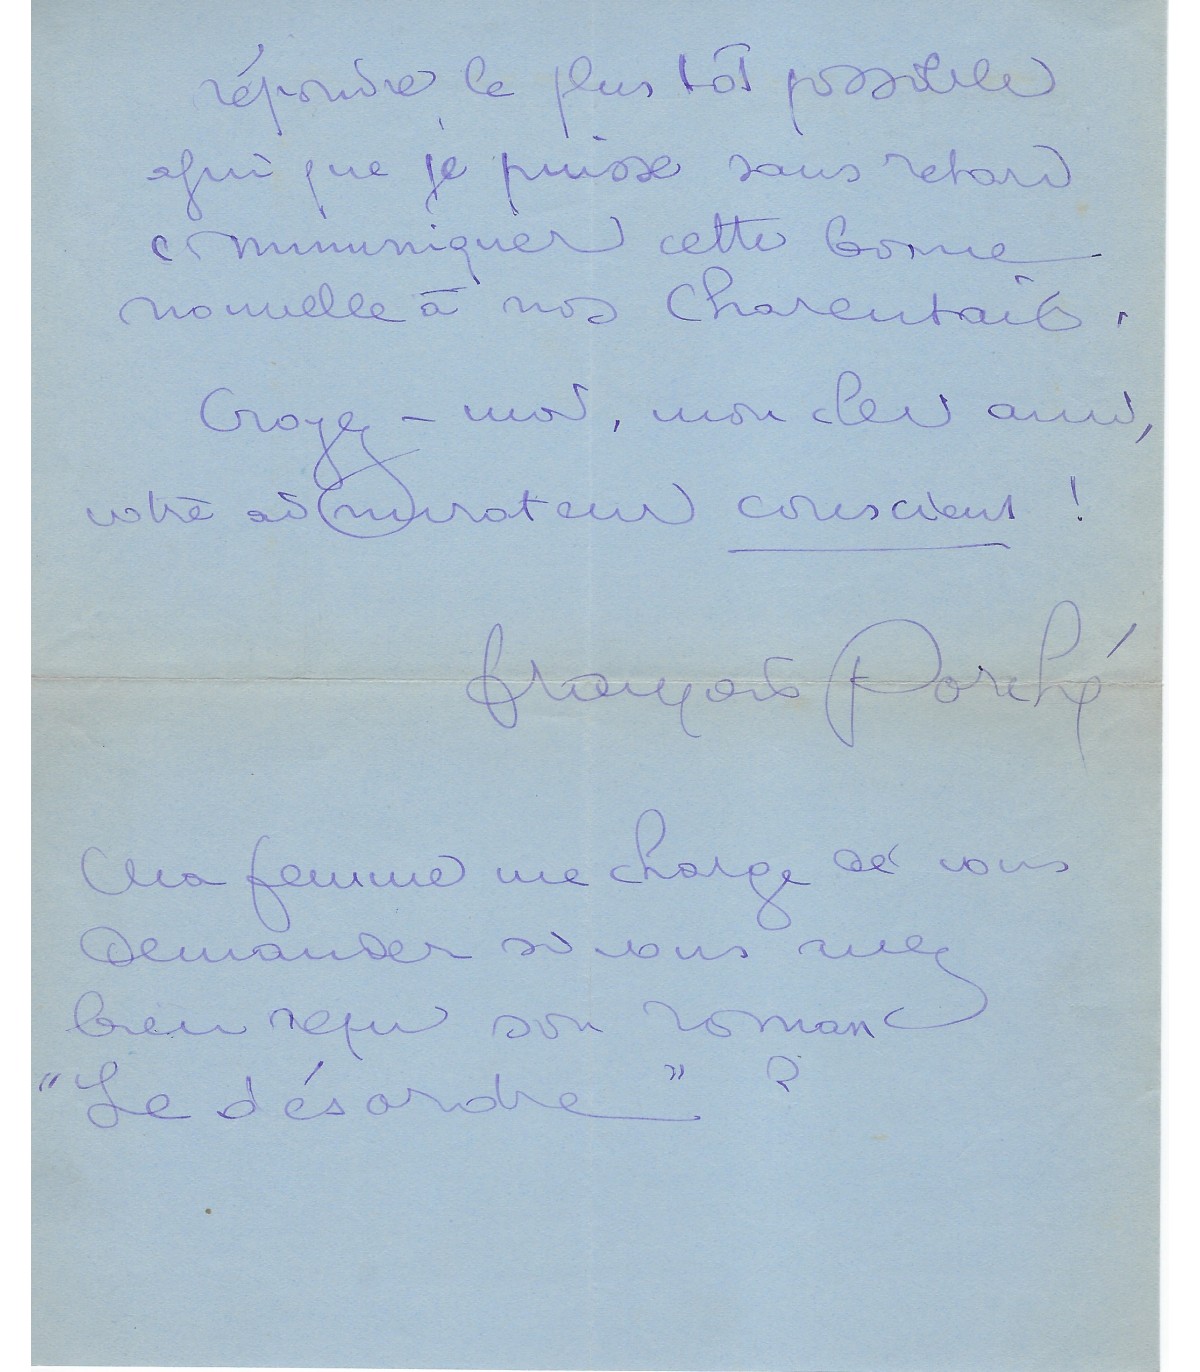 répondre le plus tôt possible
afin que je puisse sans retard
communiquer cette bonne
nouvelle à nos Charentais.
Croyez-moi, mon cher ami,
votre admirateur conscient !
François Porché
Ma femme me charge de vous
demander si vous avez
bien reçu son roman
"Le désordre" ?